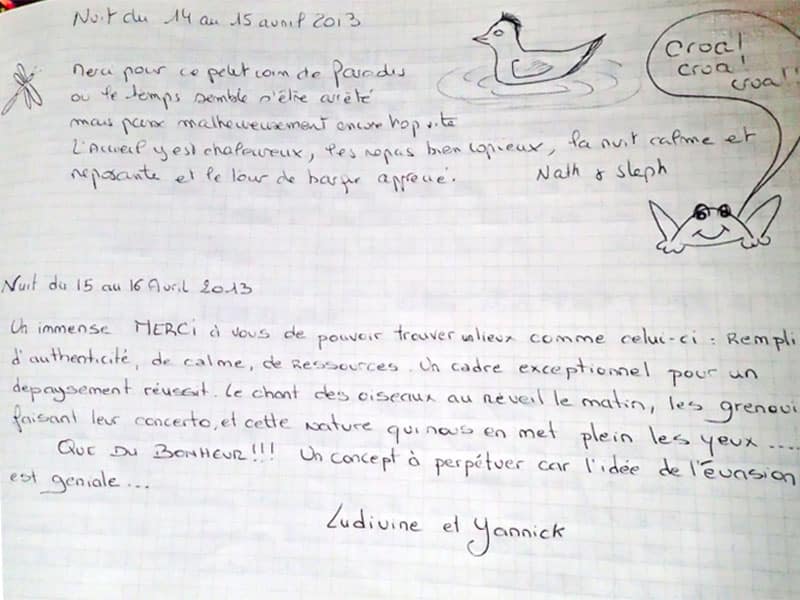 Nuit du 14 au 15 avril 2013
Croa!
croa!
croa!
Merci pour ce petit coin de Paradis
ou le temps semble s'être arrêté
mais passe malheureusement encore trop vite
L'Accueil y est chaleureux, les repas bien copieux, la nuit calme et
reposante et le tour de barque apprécié.
Nath & Steph
Nuit du 15 au 16 Avril 2013
Un immense MERCi à vous de pouvoir trouver un lieux comme celui-ci : Rempli
d'authenticité, de calme, de Ressources. Un cadre exceptionnel pour un
depaysement réussit. Le chant des oiseaux au réveil le matin, les grenoui
faisant leur concerto, et cette nature qui nous en met plein les yeux ....
QUE DU BONHEUR!!! Un concept à perpétuer car l'idée de l'évasion
est geniale...
Ludivine et Yannick